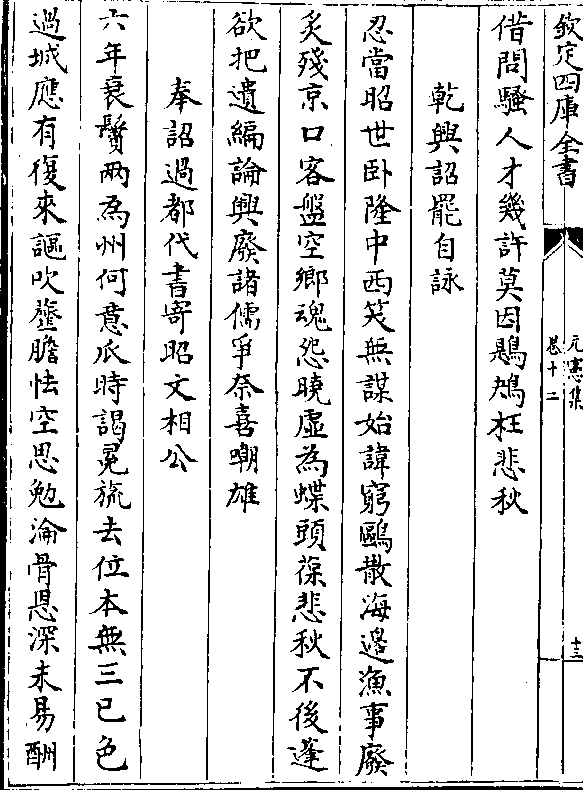 欽定四庫全書
元憲集
卷十二
十三
借問騷人才幾許莫因鶗鴂枉悲秋
乾興詔罷自詠
忍當昭世卧隆中西笑無謀始諱窮鷗散海邊漁事廢
炙殘京口客盤空鄉魂怨曉虛為蝶頭葆悲秋不後蓬
欲把遺編論興廢諸儒爭奈喜嘲雄
奉詔過都代書寄昭文相公
六年衰鬢兩為州何意瓜時謁冕旒去位本無三已色
過城應有復來謳吹虀膽怯空思勉淪骨恩深未易酬